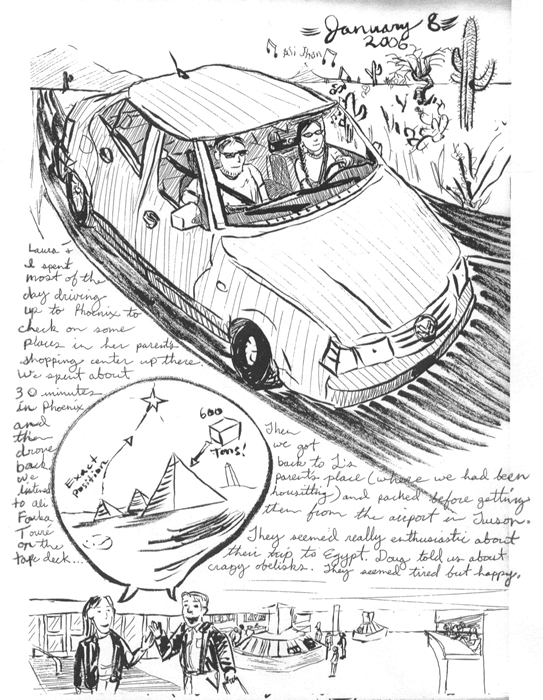 January 8
2006
Ali Jhon
Laura &
I spent
most of the
day driving
up to Phoenix to
check on some
places in her parents
shopping center up there.
We spent about
30 minutes
in Phoenix
and
then
drove
back
we
listened
to ali
Farka
Touré
on the
tape deck...
Exact
Position
600
Tons!
Then
we got
back to L's
parent's place (where we had been
housitting) and packed before getting
them from the airport in Tucson.
They seemed really enthusiastic about
their trip to Egypt. Doug told us about
crazy obelisks. They seemed tired but happy.